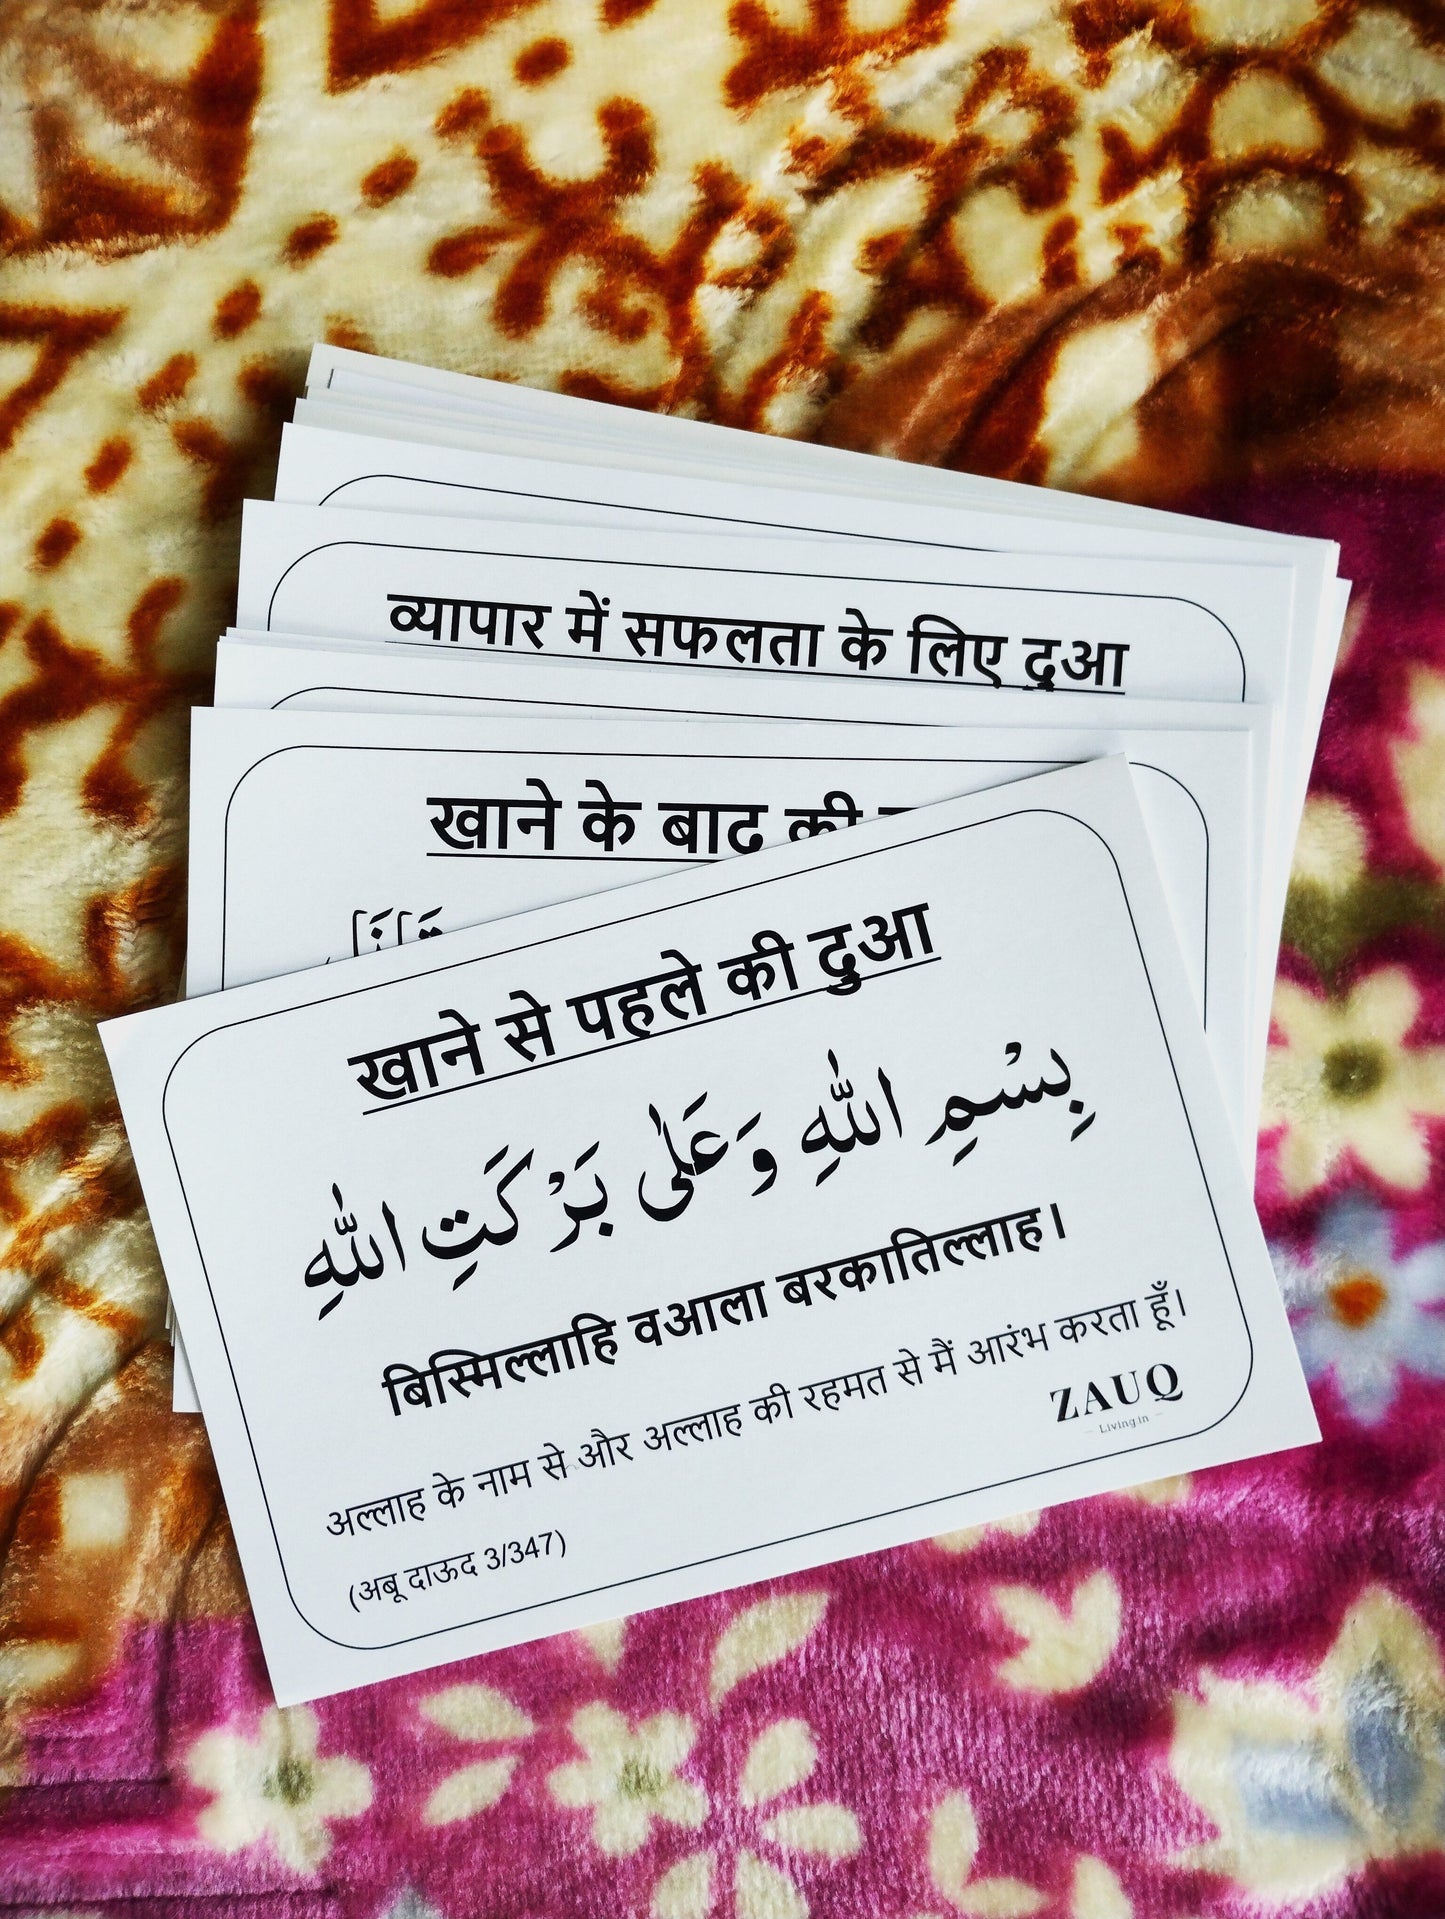 व्यापार में सफलता के लिए दुआ
खाने के बाद की
खाने से पहले की दुआ
بِسْمِ اللّٰهِ وَعَلٰى بَرْكَتِ اللّٰهِ
बिस्मिल्लाहि वआला बरकातिल्लाह।
अल्लाह के नाम से और अल्लाह की रहमत से मैं आरंभ करता हूँ।
(अबू दाऊद 3/347)
ZAUQ
Living in